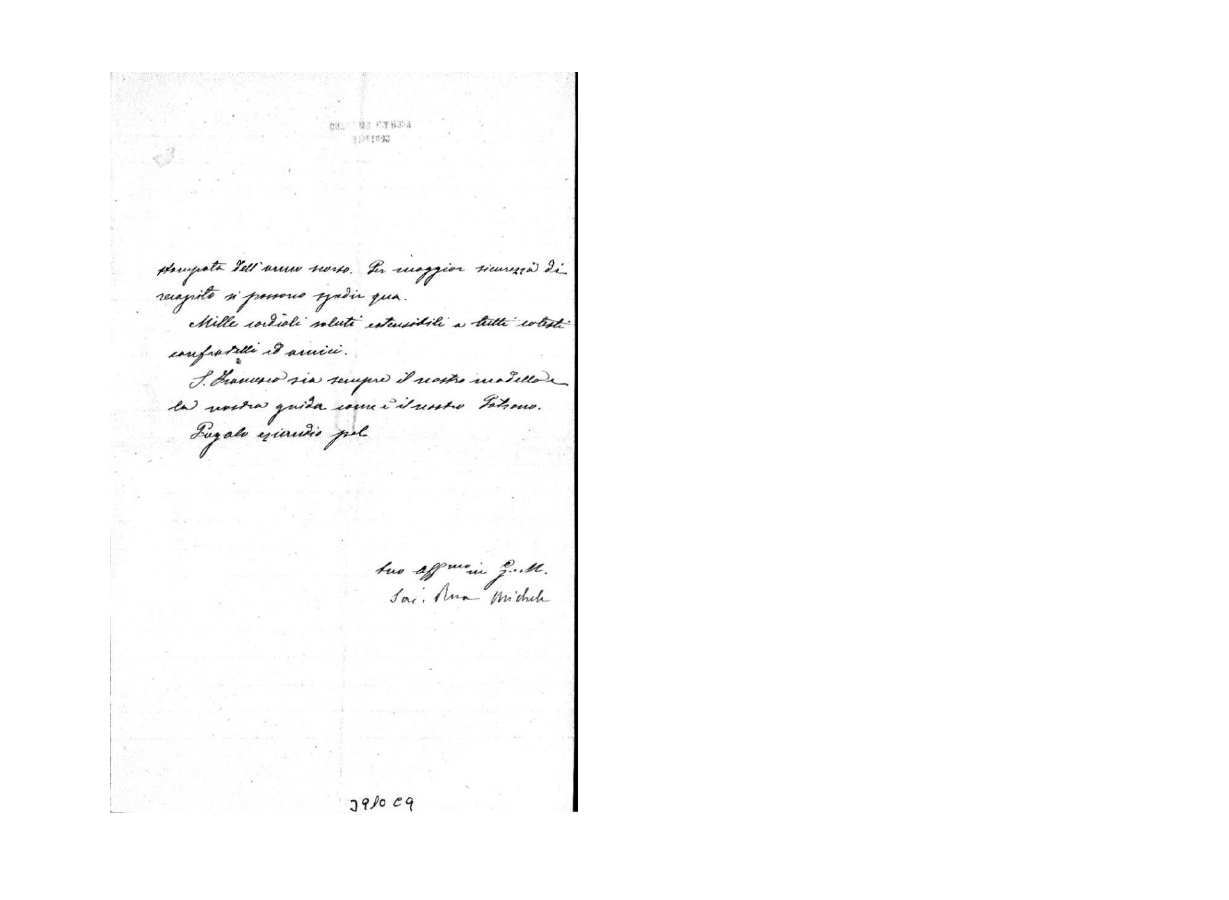 stampata dell'anno scorso. Per maggior sicurezza di
recapito si possono spedir qua.
Mille cordiali saluti estensibili a tutti cotesti
confratelli ed amici.
S. Francesco sia sempre il nostro modello e
la nostra guida come è il nostro Patrono.
Pregalo eziandio pel
tuo aff.mo in G. e M.
Sac. Rua Michele
3910 C9